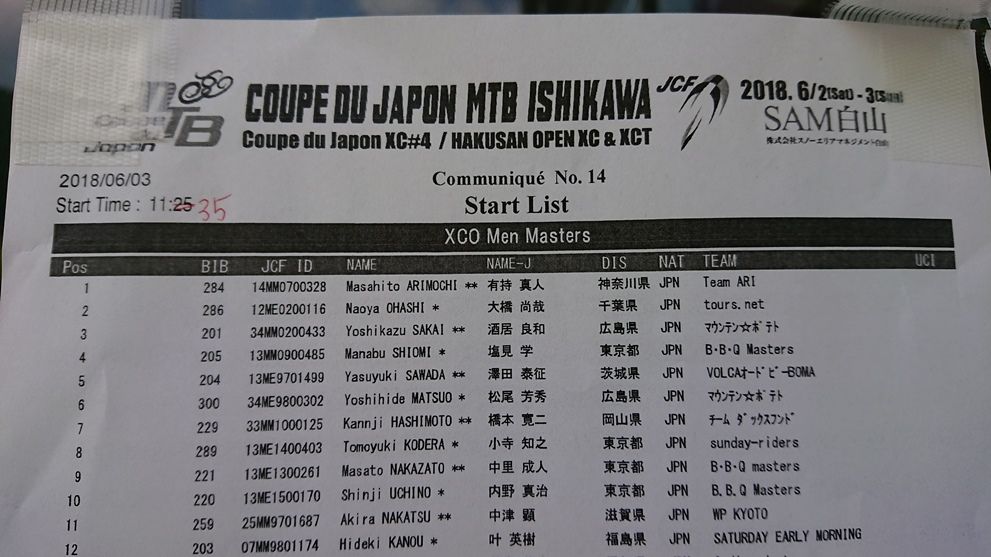 MTB
Coupe du Japon
COUPE DU JAPON MTB ISHIKAWA
JCF
2018. 6/2(Sat) - 3(Sun)
Coupe du Japon XC#4 / HAKUSAN OPEN XC & XCT
SAM白山
株式会社スノーエリアマネジメント白山
2018/06/03
Communiqué No. 14
Start Time : 11:25 35
Start List
XCO Men Masters
Pos BIB JCF ID NAME NAME-J DIS NAT TEAM UCI
1 284 14MM0700328 Masahito ARIMOCHI ** 有持 真人 神奈川県 JPN Team ARI
2 286 12ME0200116 Naoya OHASHI * 大橋 尚哉 千葉県 JPN tours.net
3 201 34MM0200433 Yoshikazu SAKAI ** 酒居 良和 広島県 JPN ﾏｳﾝﾃﾝ☆ﾎﾟﾃﾄ
4 205 13MM0900485 Manabu SHIOMI * 塩見 学 東京都 JPN B・B・Q Masters
5 204 13ME9701499 Yasuyuki SAWADA ** 澤田 泰征 茨城県 JPN VOLCAｵｰﾄﾞﾋﾞｰBOMA
6 300 34ME9800302 Yoshihide MATSUO * 松尾 芳秀 広島県 JPN ﾏｳﾝﾃﾝ☆ﾎﾟﾃﾄ
7 229 33MM1000125 Kannji HASHIMOTO ** 橋本 寛二 岡山県 JPN ﾁｰﾑ ﾀﾞｯｸｽﾌﾝﾄﾞ
8 289 13ME1400403 Tomoyuki KODERA * 小寺 知之 東京都 JPN sunday-riders
9 221 13ME1300261 Masato NAKAZATO ** 中里 成人 東京都 JPN B・B・Q masters
10 220 13ME1500170 Shinji UCHINO * 内野 真治 東京都 JPN B.B.Q Masters
11 259 25MM9701687 Akira NAKATSU ** 中津 顕 滋賀県 JPN WP KYOTO
12 203 07MM9801174 Hideki KANOU * 叶 英樹 福島県 JPN SATURDAY EARLY MORNING